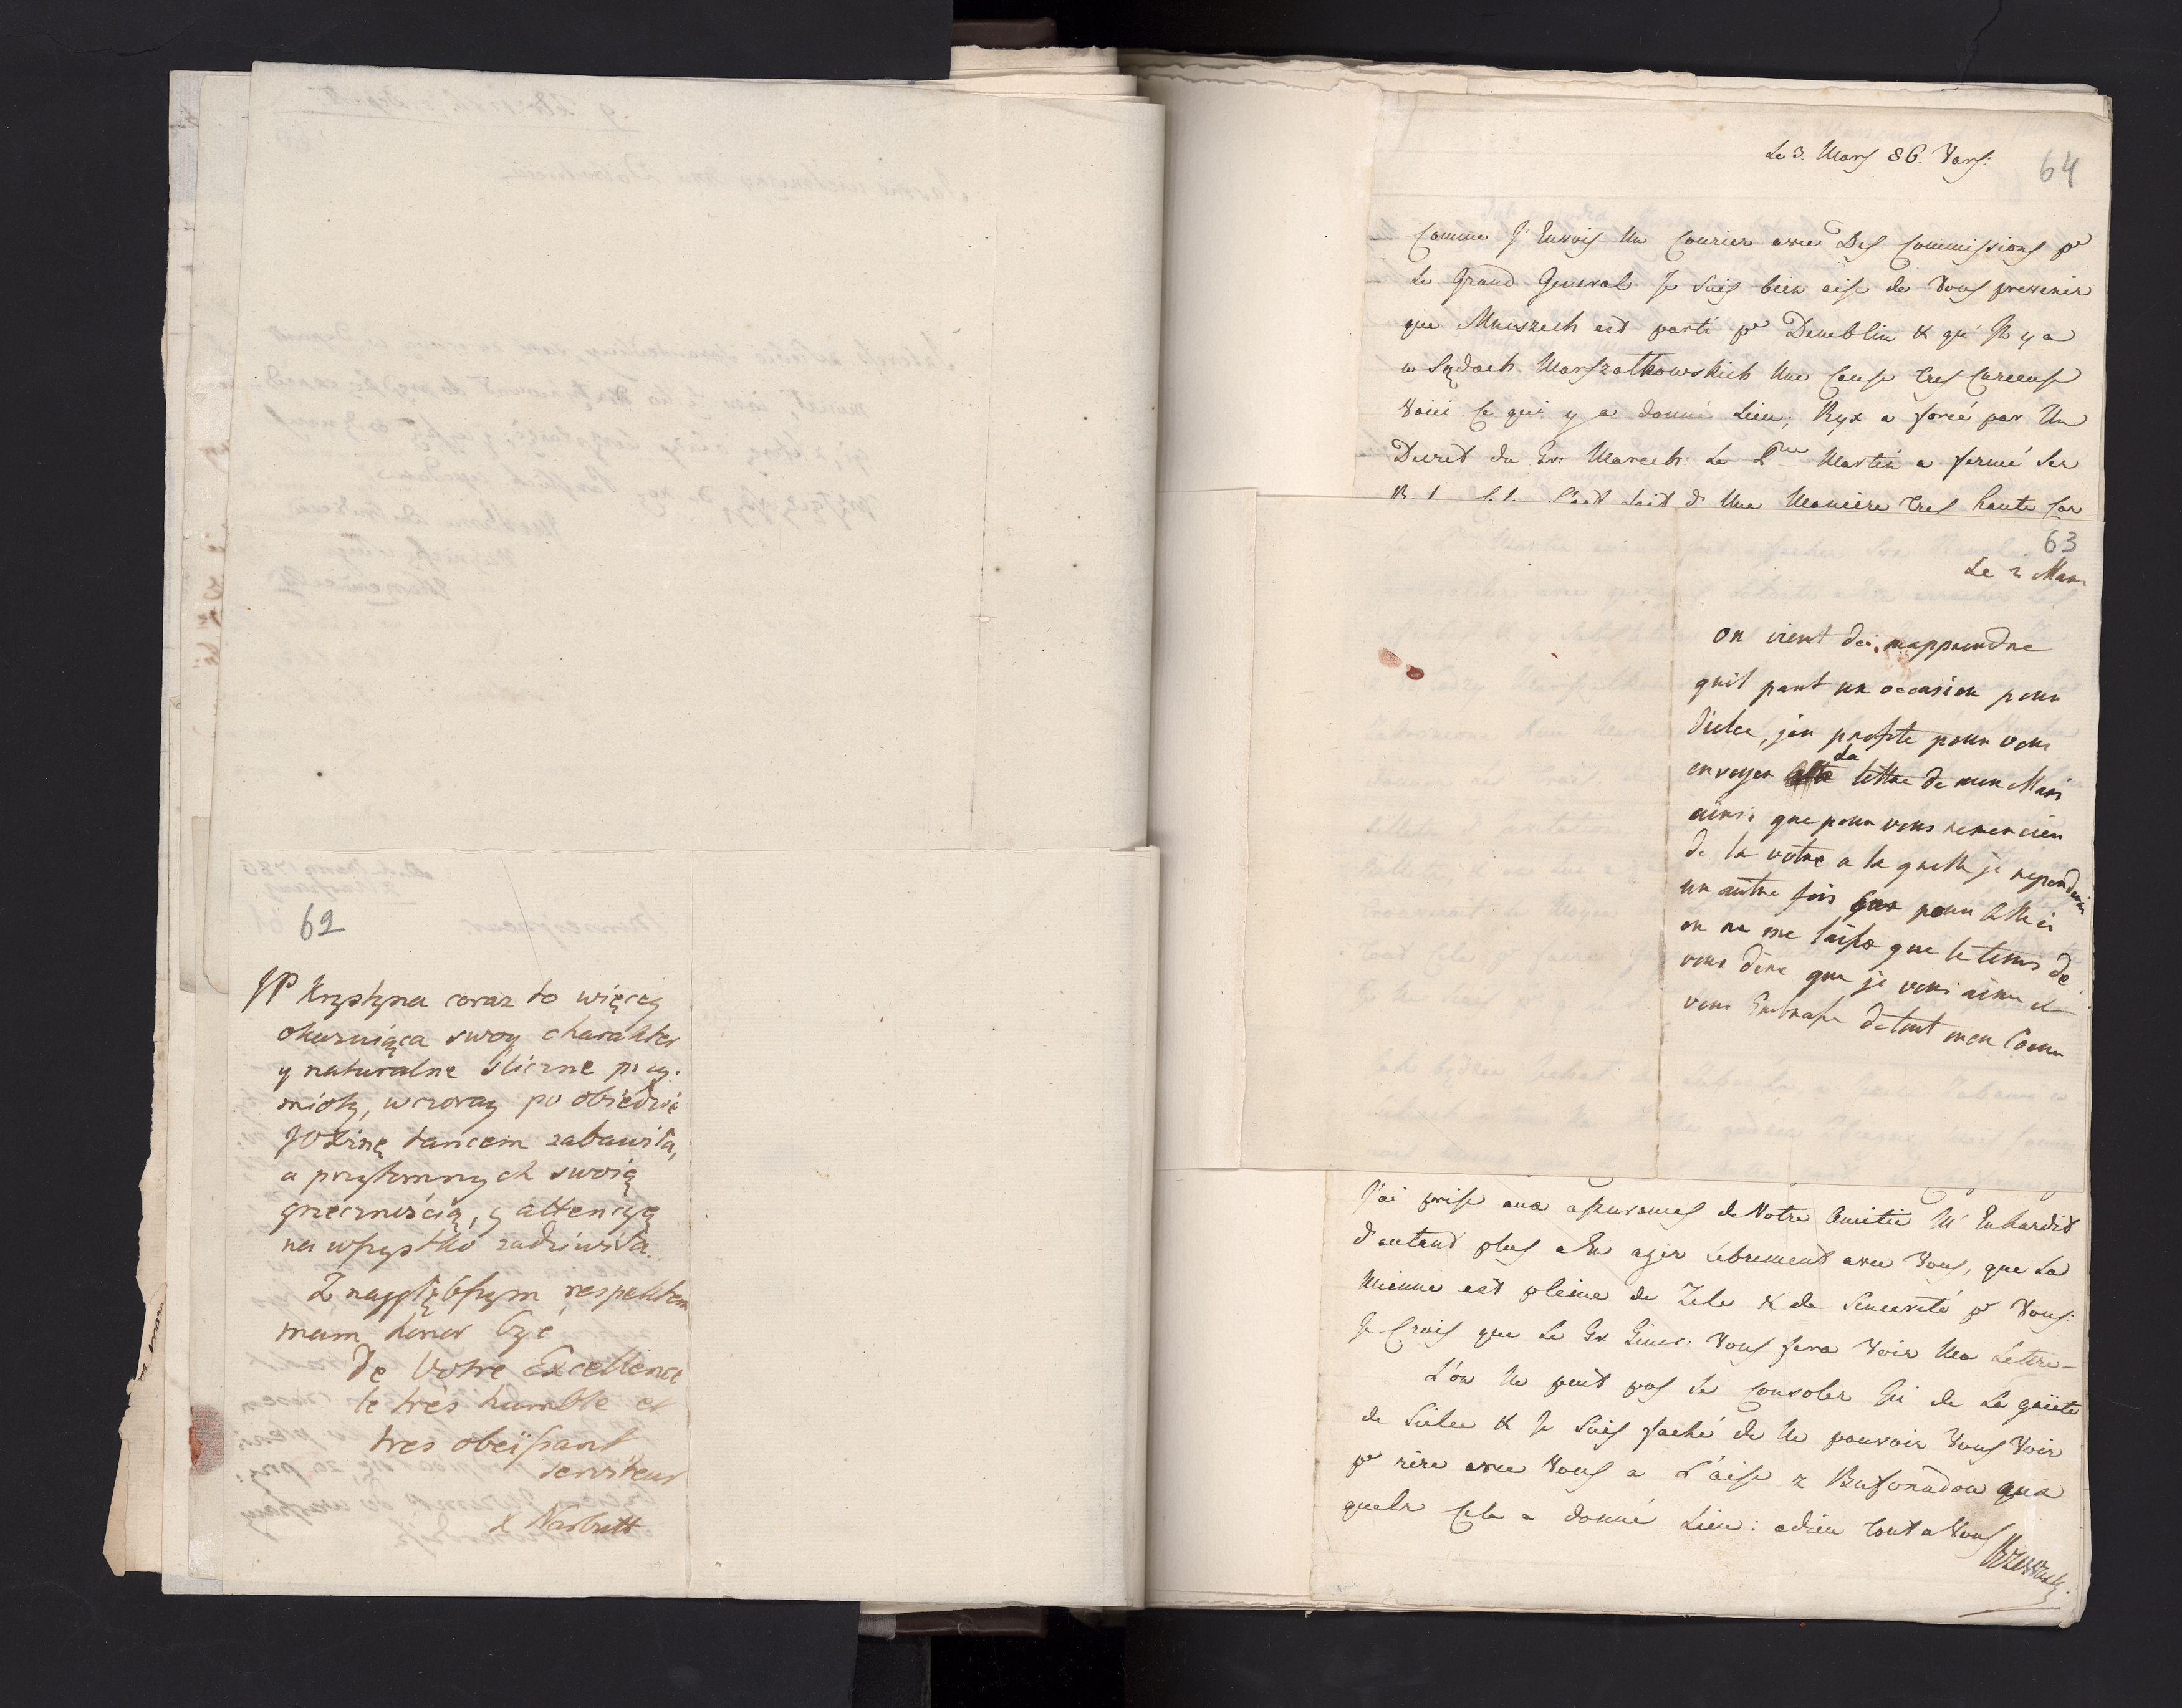 62
JP Krystyna coraz to więcey
okazuiąca swoy charakter
y naturalne śliczne przy-
mioty, wczoray po obiedzie
godzinę tancem zabawiła,
a przytomnych swoią
grzecznością, y attencyą
na wszystko zadziwiła.
Z naygłębszym respektem
mam honor być
De Votre Excellence
le très humble et
très obeissant
serviteur
X Narbutt
64
Le 3. Mars 86. Vars:
Comme J'Envois Un Courier avec Des Commissions pr
Le Grand General Je Suis bien aise de Vous prevenir
que Mniszech est parti pr Demblin & qu'Il y a
w Sądach Marszałkowskich Une Cause tres Curieuse
Voici Ce qui y a donné Lieu; Ryx a forcé par Un
Decret du Gr: Marech: Le Martin a fermé Ses
Une Maniere tres haute Car
63
Le 2 Mars
On vient de mapprendre
quil part un occasion pour
Siulce, jen profite pour vous
envoyer La lettre de mon Mari
ainsi que pour vous remercier
de la votre a la quelle je reponderai
un autre fois pour
on ne me laisse que le tems de
vous dire que je vous aime et
vous Embrasse de tout mon Coeur
J'ai prise aux assurances de Votre Amitie M'Enhardit
d'autant plus a En agir Librement avec Vous, que La
Mienne est pleine de Zele & de Sincerité pr Vous:
Je Crois que Le Gr. Gener: Vous fera Voir Ma Lettre-
L'on Ne peut pas Se Consoler Ici de La gaiete
de Siulce & Je Suis faché de Ne pouvoir Vous Voir
pr rire avec Vous a L'aise z Bufonadow
quels Cela a donné Lieu: adieu tout a Vous
Rzewuski